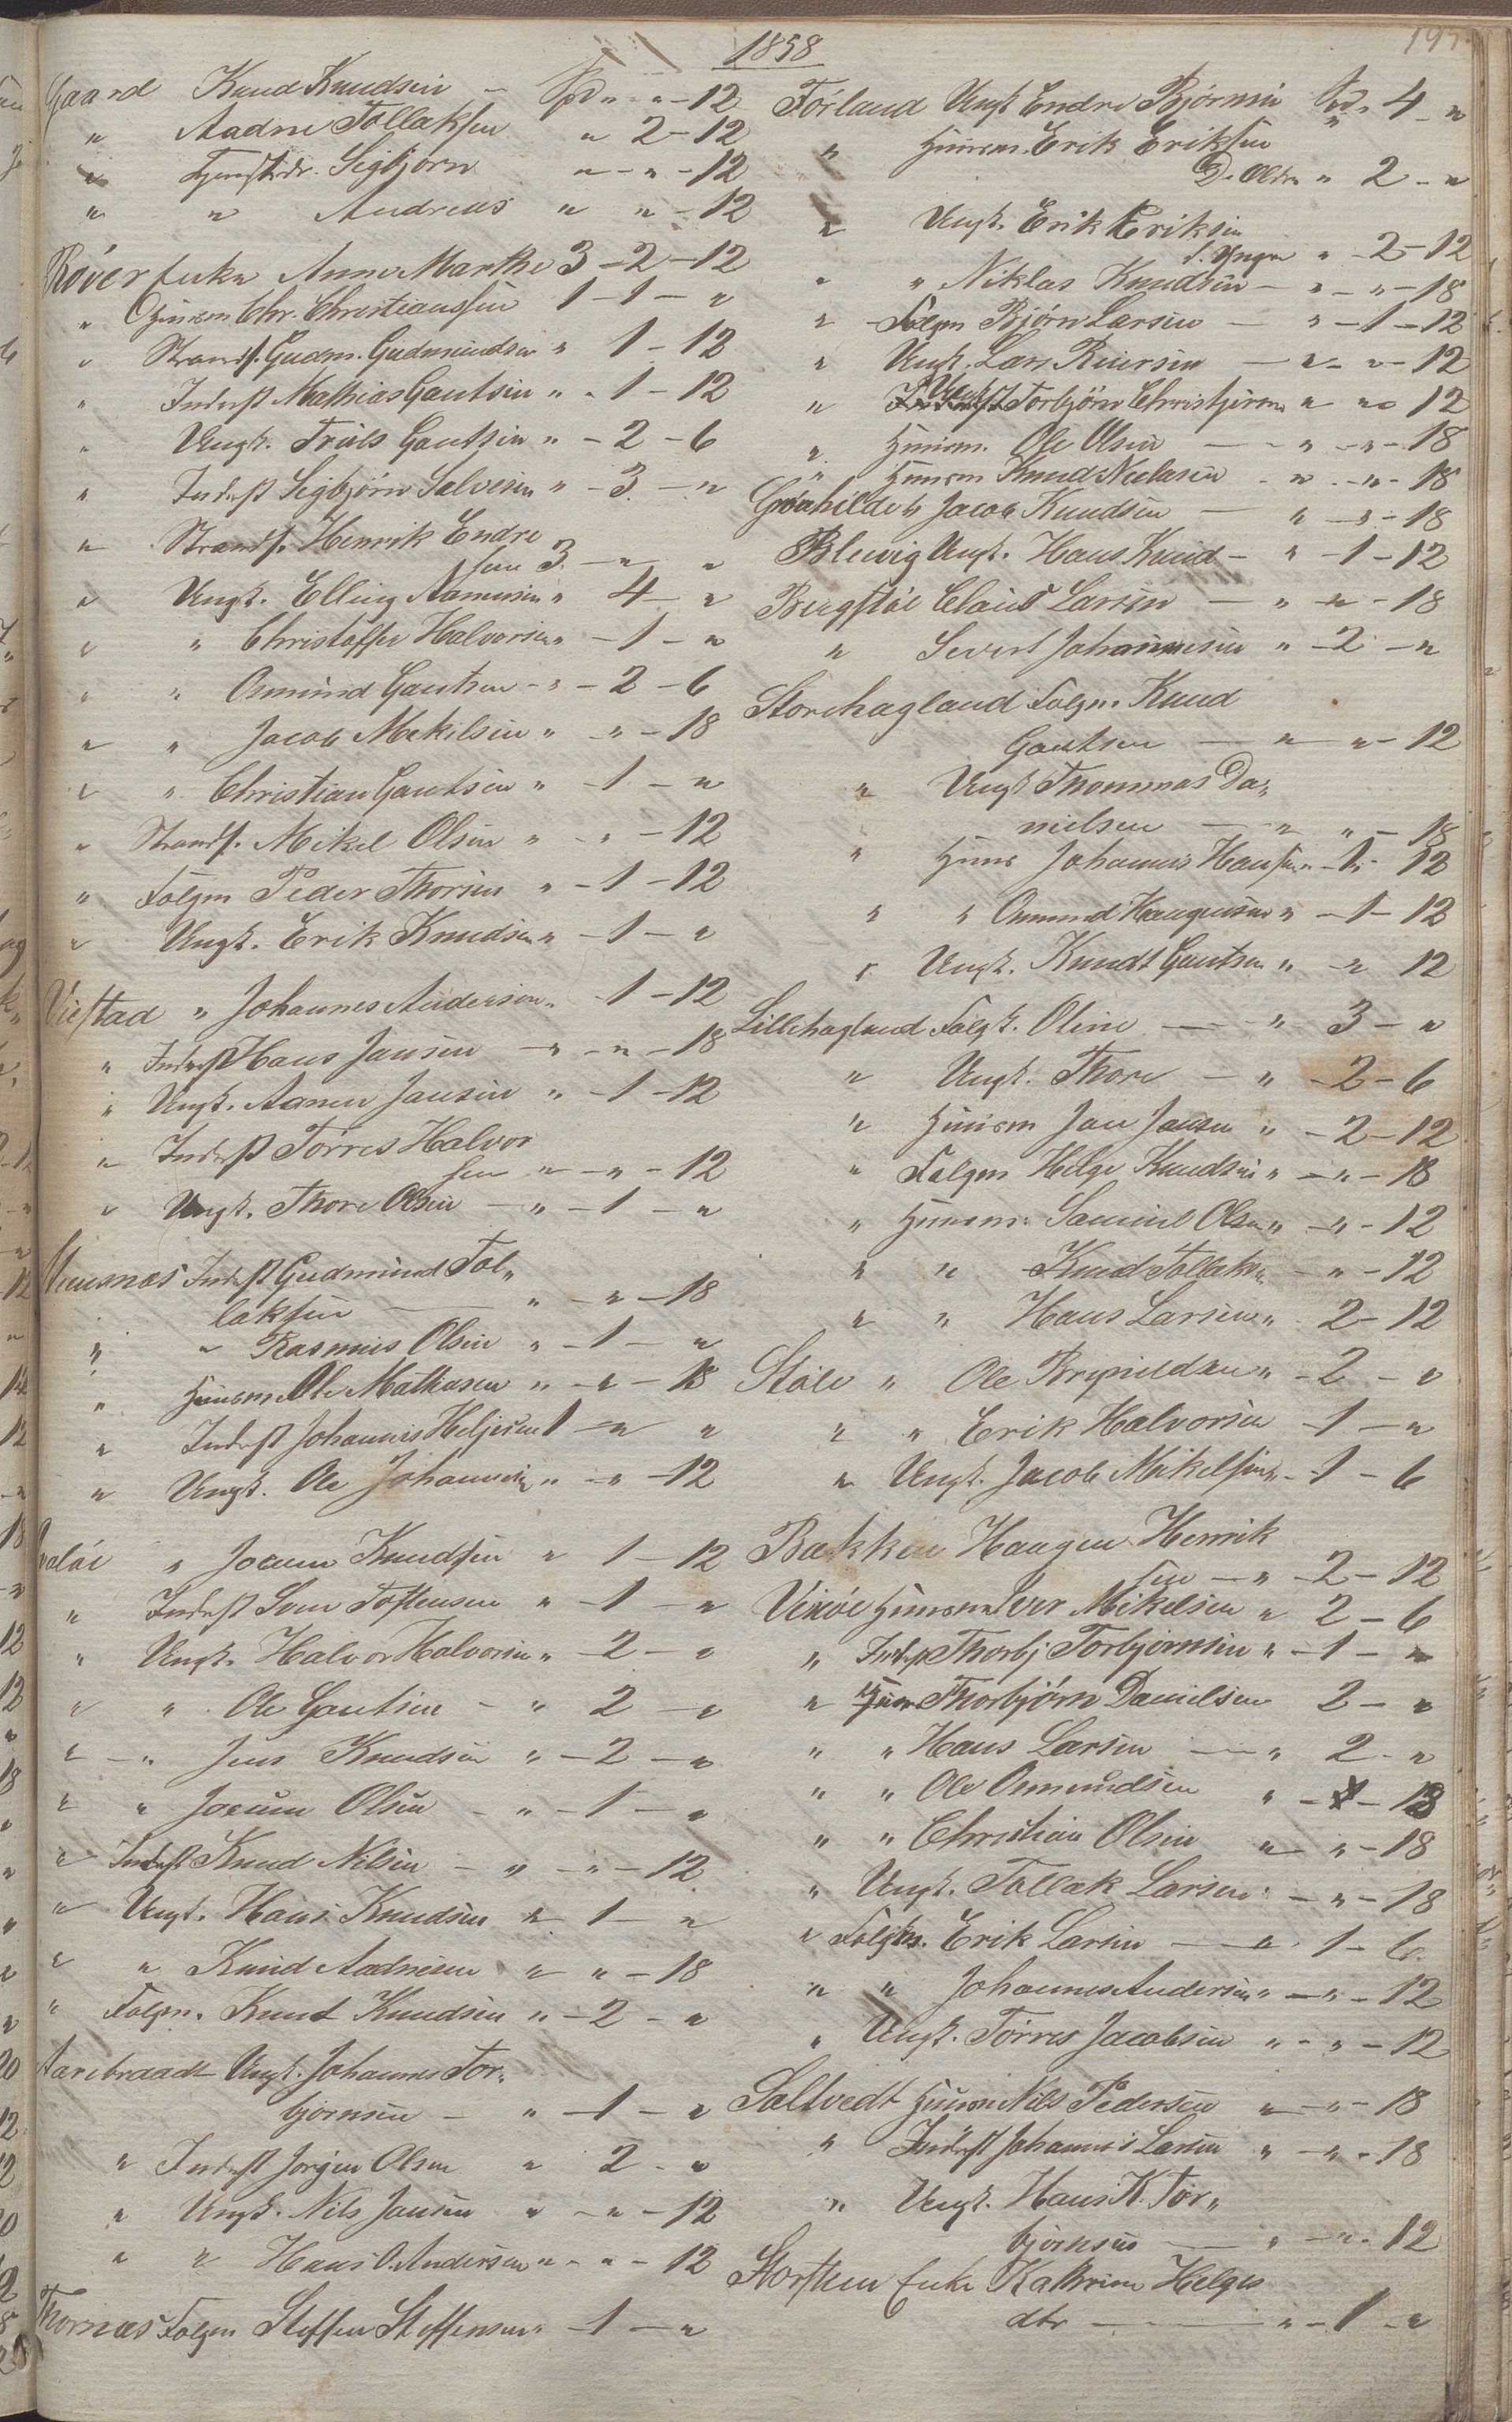 1858
197
Gaard Knud Knudsen — Spd „ „ – 12
„ Aadne Tollaksen „ 2 – 12
„ Tjenstedr. Sigbjørn „ – „ – 12
„ „ Andreas „ „ – 12
Røvær Enke Anne Marthe 3 – 2 – 12
„ Huusm Chr. Christiansen 1 – 1 – „
„ Strands. Gudm. Gudmundsen „ 1 – 12
„ Inderst Mathias Gautsen „ „ 1 – 12
„ Ungk. Truls Gautsen „ – 2 – 6
„ Inderst Sigbjørn Salvesen „ – 3 – „
„ Strands. Henrik Endre
sen 3 – „ „
„ Ungk. Elling Rasmusen „ 4 – „
„ „ Christoffer Halvorsen „ – 1 – „
„ „ Osmund Gautsen – „ – 2 – 6
„ „ Jacob Mekelsen „ „ – 18
„ „ Christian Gautsen „ – 1 – „
„ Strands. Mikel Olsen „ – „ – 12
„ Folgm Peder Thorsen „ – 1 – 12
„ Ungk. Erik Knudsen „ – 1 – „
Viestad „ Johannes Andersen „ – 1 – 12
„ Inderst Hans Jansen – „ – „ – 18
„ Ungk. Aanen Jansen „ – 1 – 12
„ Inderst Tørres Halvor
sen „ – „ – 12
„ Ungk. Thore Olsen – „ – 1 – „
Inderst Gudmund Tol„
laksen — „ – „ – 18
„ „ Rasmus Olsen „ – 1 – „
„ Huusm Ole Mathasen „ – „ – 18
„ Inderst Johannes Heljesen 1 – „ „
„ Ungk. Ole Johannesen „ – „ – 12
„ Joram Knudsen „ 1 – 12
„ Inderst Sven Tostensen „ – 1 – „
„ Ungk. Halvor Halvorsen „ – 2 – „
„ „ Ole Gautsen – „ 2 – „
„ – „ Jens Knudsen „ – 2 – „
„ „ Joram Olsen – „ – 1 – „
„ Inderst Knud Nilsen – „ – „ – 12
„ Ungk. Hans Knudsen „ 1 – „
„ „ Knud Aadnesen „ „ – 18
„ Folgm. Knut Knudsen „ – 2 – „
Aarebraadt Ungk. Johannes Tor„
bjørnsen – „ – 1 – „
„ Inderst Jørgen Olsen „ 2 – „
„ Ungk. Nils Jansen „ – „ – 12
„ „ Hans O. Andersen „ – „ – 12
Thornæs Folgm Steffen Steffensen „ – 1 – „
Førland Ungk Endre Bjørnsen Spd „ 4 – „
„ Huusm. Erik Eriksen
D. Oldre „ 2 – „
„ Ungk. Erik Eriksen
d. Yngre „ – 2 – 12
„ „ Niklas Knudsen – „ – „ – 18
„ Folgm Bjørn Larsen – „ – 1 – 12
„ Ungk. Lars Reiersen – „ – „ – 12
„ Ungk Torbjørn Christjernsen „ „ 12
„ Huusm. Ole Olsen – „ – „ – 18
„ Huusm Knud Neelasen – „ – „ – 18
Grønhilder Jacob Knudsen – „ – „ – 18
Blewig Ungk. Hans Knud – „ – 1 – 12
Bergstøl Claus Larsen – „ – „ – 18
„ Severt Johannesen „ – 2 – „
Storehagland Folgm. Knud
Gautsen — „ — „ – 12
„ Ungk Thommas Da„
nielsen — „ „ – 18
„ Huusm Johannes Hansen „ – 1 – 12
„ „ Osmund Haagensen „ – 1 – 12
„ Ungk. Knudt Gautsen „ – „ 12
Lillehagland Folgk. Oline — „ 3 – „
„ Ungk. Thore — „ – 2 – 6
„ Huusm Jan Jansen „ – 2 – 12
„ Folgm Helge Knudsen „ – „ – 18
„ Huusm. Samuel Olsen „ – „ – 12
„ „ Knud Tollaksen – „ – 12
„ „ Hans Larsen „ 2 – 12
Støle „ Ole Brynildsen „ – 2 – „
„ „ Erik Halvorsen – 1 – „
„ Ungk. Jacob Mikelsen „ – 1 – 6
Bakken Haagen Henrik
sen — „ – 2 – 12
Huusm Iver Mikelsen „ 2 – 6
„ Inderst Thorbj Torbjørnsen „ – 1 – „
„ Huusm Thorbjørn Danielsen 2 – „
„ „ Hans Larsen — „ 2 – „
„ „ Ole Osmundsen „ – „ – 18
„ „ Christian Olsen „ – „ – 18
„ Ungk. Tollak Larsen – „ – 18
„ Folgm. Erik Larsen — „ 1 – 6
„ „ Johannes Andersen „ – „ – 12
„ Ungk. Tørres Jacobsen „ – „ – 12
Saltvedt Huusm Nils Pedersen „ – „ – 18
„ Inderst Johannes Larsen „ – „ – 18
„ Ungk. Hans K. Tor„
bjørnsen — „ – „ – 12
Storsteen Enke Kathrine Helges
dtr — „ – 1 – „